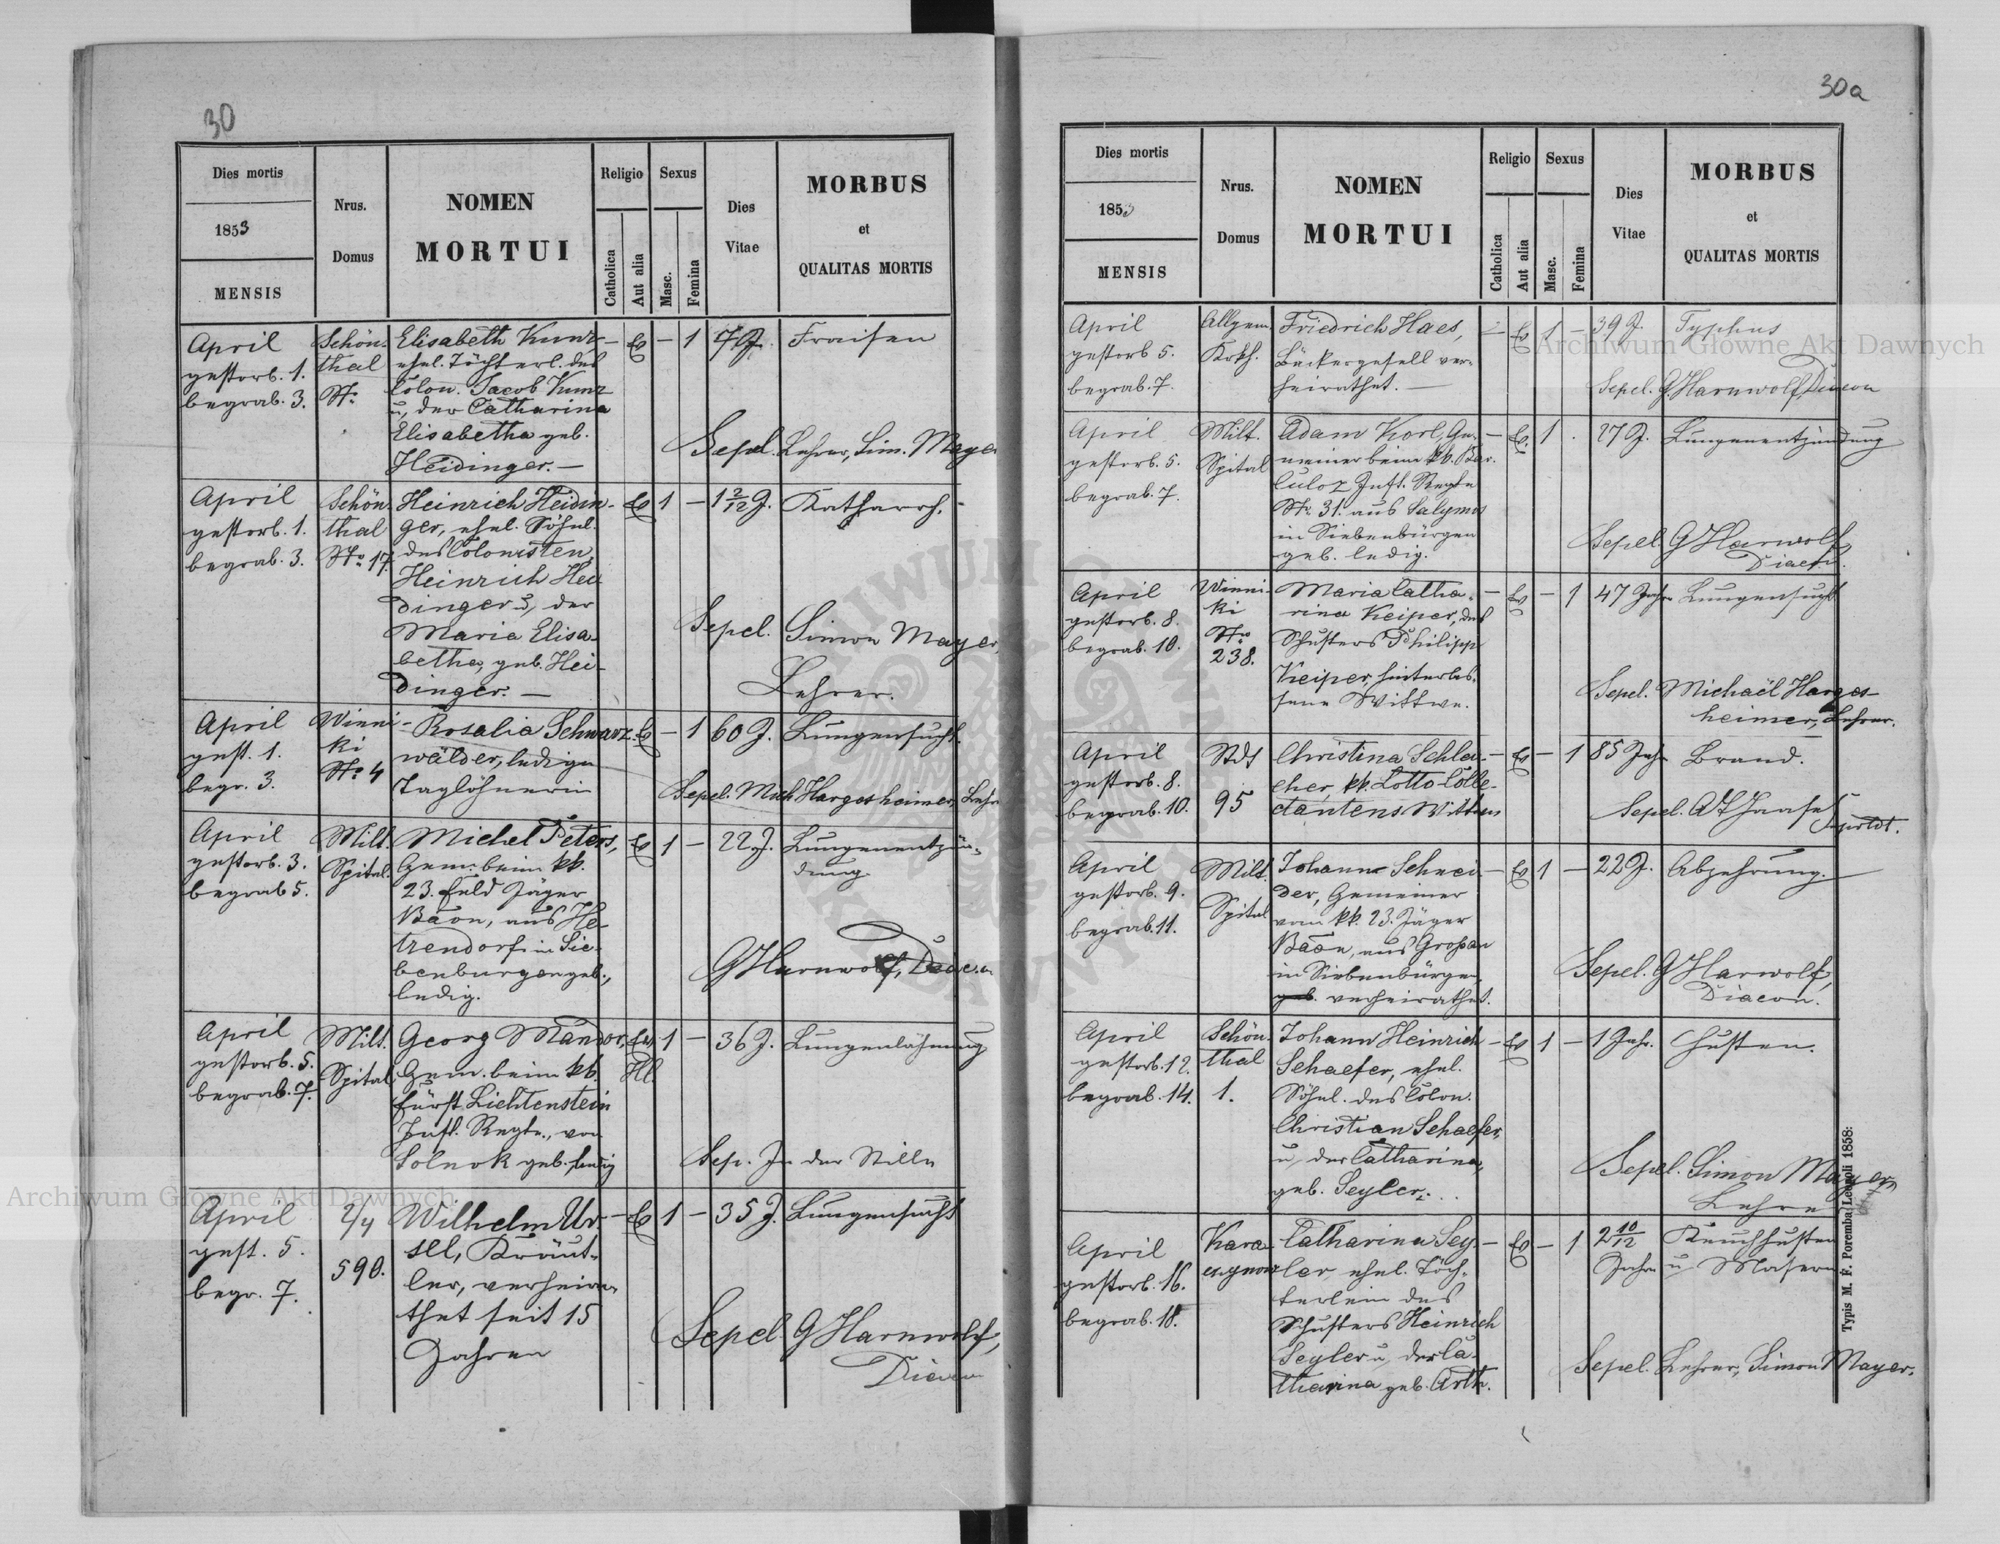 30
Dies mortis
1853
MENSIS
Nrus.
Domus
NOMEN
MORTUI
Religio
Catholica
Aut alia
Sexus
Masc.
Femina
Dies
Vitae
MORBUS
et
QUALITAS MORTIS
April
gestorb. 1.
begrab. 3.
Schön-
thal
No
Elisabeth Kunz
ehel. Töchterl. des
Colon. Jacob Kunz
u. der Catharina
Elisabetha geb.
Heidinger. —
Ev — 1
7 J.
Fraisen
Sepel. Lehrer, Sim. Mayer
April
gestorb. 1.
begrab. 3.
Schön-
thal
No 17.
Heinrich Heidin-
ger, ehel. Söhnl.
des Colonisten,
Heinrich Hei
dinger u. der
Maria Elisa-
betha, geb. Hei-
dinger. —
Ev 1 —
1 2/12 J.
Katharrh.
Sepel. Simon Mayer,
Lehrer.
April
gest. 1.
begr. 3.
Winni-
ki
No 4
Rosalia Schwarz-
wälder, ledige
Taglöhnerin
Ev — 1
60 J.
Lungensucht.
Sepel. Mich Hargesheimer, Lehr
April
gestorb. 3.
begrab 5.
Milt.
Spital.
Michel Peters,
Gem. beim kk.
23. Feld Jäger
Baon, aus He-
trendorf in Sie-
benburgen geb.,
ledig.
Ev 1 —
22 J.
Lungenentzün-
dung.
G Harnwolf, Diacon
April
gestorb. 5.
begrab. 7.
Milt.
Spital
Georg Mandor,
Gem. beim kk.
Fürst Lichtenstein
Inft. Regte., von
Solnok geb. ledig
Ev.
Hl.
1 —
36 J.
Lungenlähmung
Sep. In der Stille
April
gest. 5.
begr. 7.
2/4
590.
Wilhelm Ur-
sel, Kräut-
ler, verheira-
thet seit 15
Jahren
Ev 1 —
35 J.
Lungensucht
Sepel. G Harnwolf,
Diacon
30a
Dies mortis
1853
MENSIS
Nrus.
Domus
NOMEN
MORTUI
Religio
Catholica
Aut alia
Sexus
Masc.
Femina
Dies
Vitae
MORBUS
et
QUALITAS MORTIS
April
gestorb 5.
begrab. 7.
Allgem.
Krkh.
Friedrich Haes,
Bäckergesell ver-
heirathet. —
— Ev 1 —
39 J.
Typhus
Sepel. G. Harnwolf Diacon
April
gestorb. 5.
begrab. 7.
Milt.
Spital
Adam Korl, Ge-
meiner beim kk. Bar.
Culoz Inft. Regte
No 31. aus Salymos
in Siebenbürgen
geb. ledig.
— Ev. 1
27 J.
Lungenentzündung
Sepel. G Harnwolf
Diacon.
April
gestorb. 8.
begrab. 10.
Winni-
ki
No
238.
Maria Catha-
rina Keiper, des
Schusters Philipp
Keiper, hinterlas-
sene Wittwe.
— Ev — 1
47 Jahr
Lungensucht
Sepel. Michaël Harges-
heimer, Lehrer.
April
gestorb. 8.
begrab. 10.
Stdt
95
Christina Schlei-
cher, kk. Lotto Colle-
ctantens Wittwe
— Ev — 1
85 Jahr
Brand.
Sepel.
April
gestorb. 9.
begrab. 11.
Milt.
Spital
Johann Schnei-
der, Gemeiner
vom kk. 23. Jäger
Baon, aus Großau
in Siebenbürgen
geb. verheirathet.
— Ev 1 —
22 J.
Abzehrung.
Sepel. G Harwolf,
Diacon.
April
gestorb. 12.
begrab. 14.
Schön-
thal
1.
Johann Heinrich
Schaefer, ehel.
Söhnl. des Colon.
Christian Schaefer,
u. der Catharina,
geb. Seyler.
— Ev 1 —
1 Jahr.
Husten.
Sepel. Simon Mayer,
Lehrer
April
gestorb. 16.
begrab. 18.
Catharina Sey-
ler ehel. Töch-
terlein des
Schusters Heinrich
Seyler u. der Ca-
tharina geb. Arth.
— Ev — 1
2 10/12
Jahre
Keuchhusten
u. Masern
Sepel. Lehrer, Simon Mayer.
Typis M. F. Poremba Leopoli 1858:
Archiwum Główne Akt Dawnych
Archiwum Główne Akt Dawnych